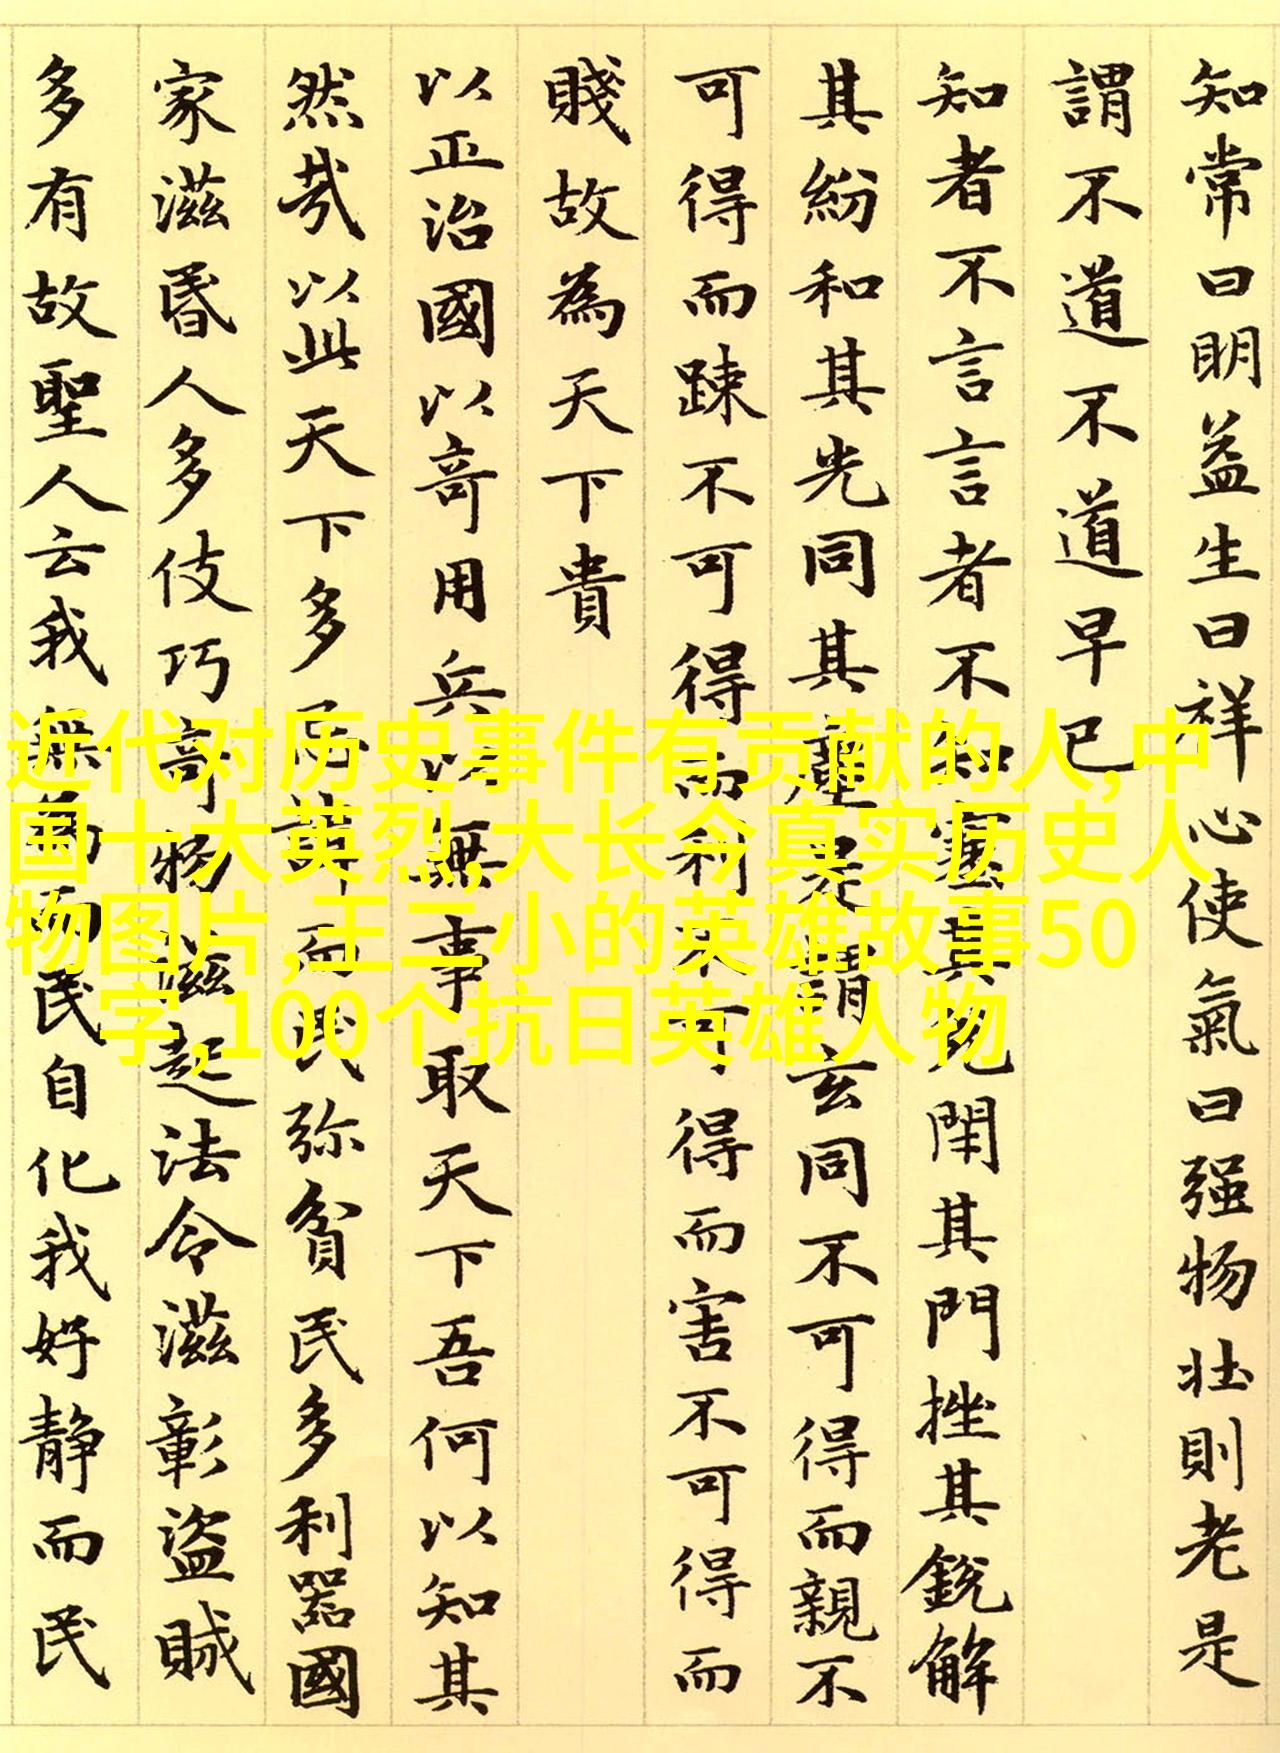 知常曰明益生曰祥心使氣曰强物壮則老是
謂不道不道早已
知者不言言者不知塞其兌閇其門挫其銳解
其紛和其光同其塵是謂玄同不可得而親不
可得而踈不可得而利不可得而害不可得而
賤故為天下貴
以正治國以奇用兵以無事取天下吾何以知其
然哉以此天下多忌諱而民弥貧民多利器國
家滋昬人多伎巧奇物滋起法令滋彰盗賊
多有故聖人云我無為而民自化我好静而民
近代对历史事件有贡献的人,中
国十大英烈,大长今真实历史人
物图片,王二小的英雄故事50
字,100个抗日英雄人物